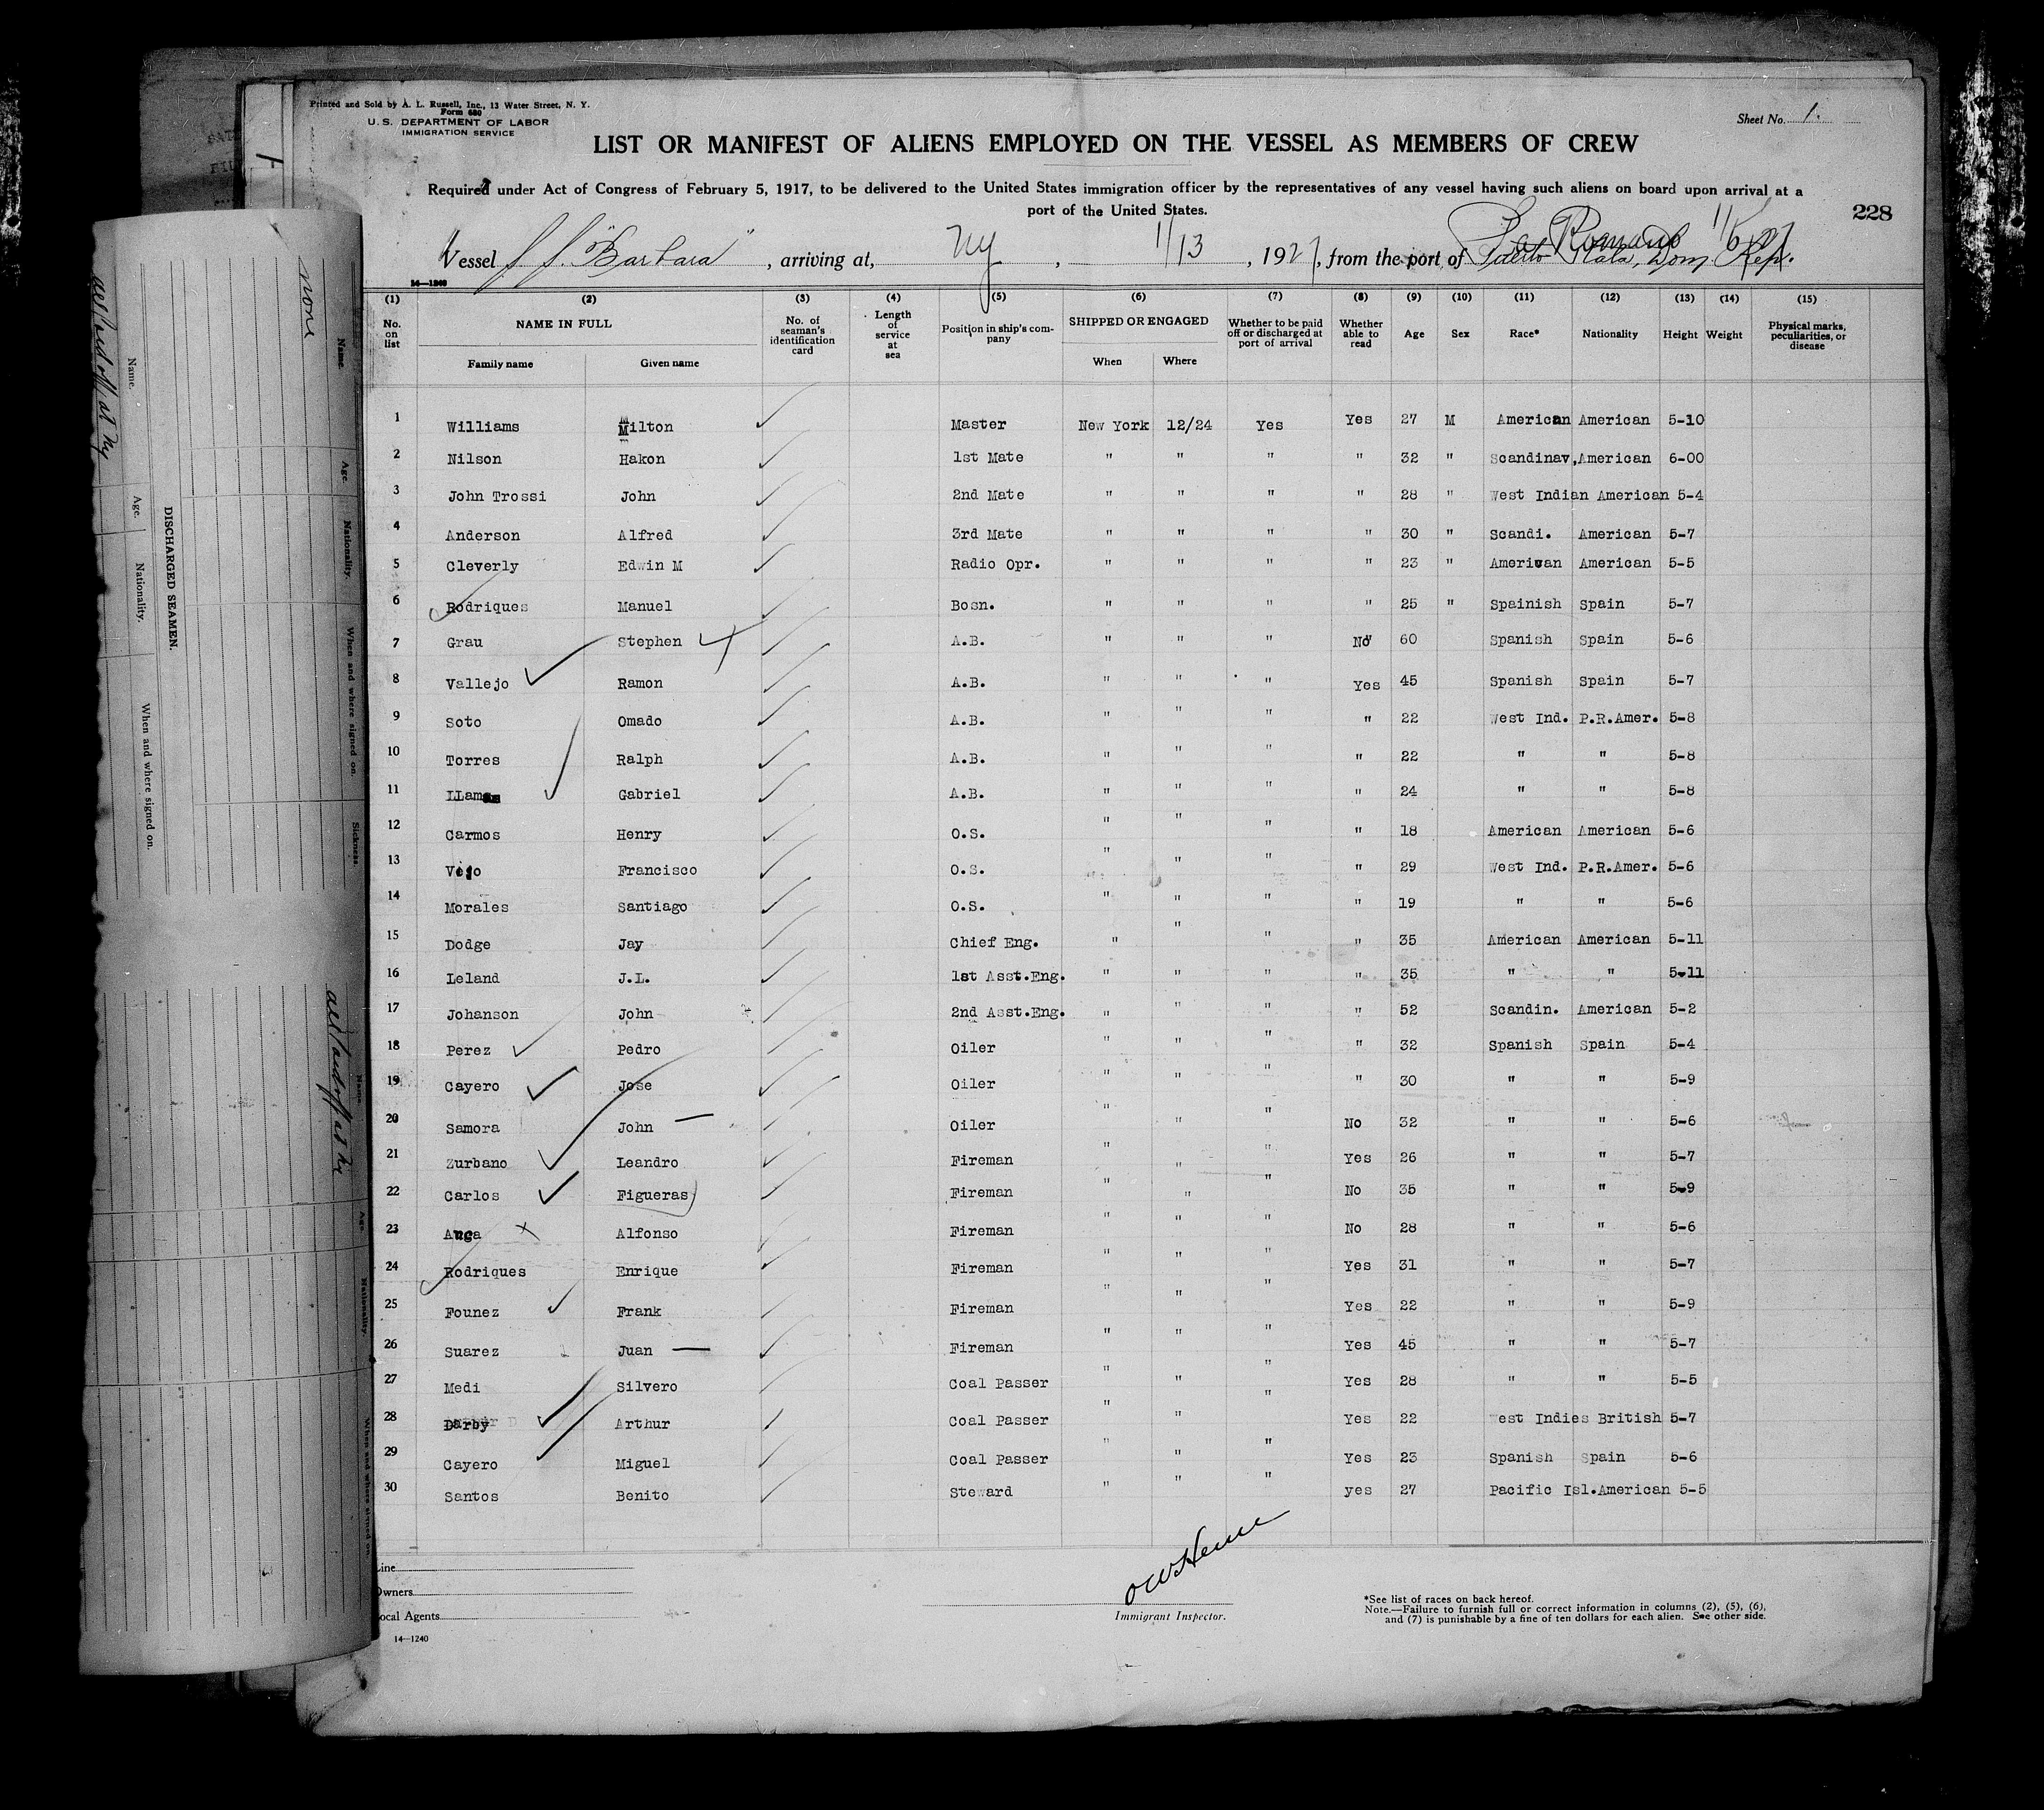 Printed and Sold by A. L. Russell, Inc., 13 Water Street, N. Y.
Form 680
U. S. DEPARTMENT OF LABOR
IMMIGRATION SERVICE
Sheet No. 1.
LIST OR MANIFEST OF ALIENS EMPLOYED ON THE VESSEL AS MEMBERS OF CREW
Required under Act of Congress of February 5, 1917, to be delivered to the United States immigration officer by the representatives of any vessel having such aliens on board upon arrival at a
port of the United States.
228
La Romana 1/6/27
Vessel S.S. "Barbara", arriving at, NY, 1/13, 1927, from the port of Puerto Plata, Dom. Rep.
14—1240
(1) (2) (3) (4) (5) (6) (7) (8) (9) (10) (11) (12) (13) (14) (15)
No. on list NAME IN FULL Family name Given name No. of seaman's identification card Length of service at sea Position in ship's company SHIPPED OR ENGAGED When Where Whether to be paid off or discharged at port of arrival Whether able to read Age Sex Race* Nationality Height Weight Physical marks, peculiarities, or disease
1 Williams Milton Master New York 12/24 Yes Yes 27 M American American 5-10
2 Nilson Hakon 1st Mate " " " " 32 " Scandinav, American 6-00
3 John Trossi John 2nd Mate " " " " 28 " West Indian American 5-4
4 Anderson Alfred 3rd Mate " " " " 30 " Scandi. American 5-7
5 Cleverly Edwin M Radio Opr. " " " " 23 " American American 5-5
6 Rodriques Manuel Bosn. " " " " 25 " Spainish Spain 5-7
7 Grau Stephen A.B. " " " No 60 Spanish Spain 5-6
8 Vallejo Ramon A.B. " " " Yes 45 Spanish Spain 5-7
9 Soto Omado A.B. " " " " 22 West Ind. P.R.Amer. 5-8
10 Torres Ralph A.B. " " " " 22 " " 5-8
11 Gabriel A.B. " " " " 24 " " 5-8
12 Carmos Henry O.S. " " " " 18 American American 5-6
13 Francisco O.S. " " " " 29 West Ind. P.R.Amer. 5-6
14 Morales Santiago O.S. " " " " 19 " " 5-6
15 Dodge Jay Chief Eng. " " " " 35 American American 5-11
16 Leland J.L. 1st Asst.Eng. " " " " 35 " " 5-11
17 Johanson John 2nd Asst.Eng. " " " " 52 Scandin. American 5-2
18 Perez Pedro Oiler " " " " 32 Spanish Spain 5-4
19 Cayero Jose Oiler " " " " 30 " " 5-9
20 Samora John Oiler " " " No 32 " " 5-6
21 Zurbano Leandro Fireman " " " Yes 26 " " 5-7
22 Carlos Figueras Fireman " " " No 35 " " 5-9
23 Alfonso Fireman " " " No 28 " " 5-6
24 Rodriques Enrique Fireman " " " Yes 31 " " 5-7
25 Founez Frank Fireman " " " Yes 22 " " 5-9
26 Suarez Juan Fireman " " " Yes 45 " " 5-7
27 Medi Silvero Coal Passer " " " Yes 28 " " 5-5
28 Darby Arthur Coal Passer " " " Yes 22 West Indies British 5-7
29 Cayero Miguel Coal Passer " " " Yes 23 Spanish Spain 5-6
30 Santos Benito Steward " " " yes 27 Pacific Isl. American 5-5
Line
Owners
Local Agents
14—1240
Immigrant Inspector.
*See list of races on back hereof.
Note.—Failure to furnish full or correct information in columns (2), (5), (6),
and (7) is punishable by a fine of ten dollars for each alien. See other side.
DISCHARGED SEAMEN.
Name. Age. Nationality. When and where signed on.
Name. Age. Nationality. When and where signed on. Sickness.
none
Name. Age. Nationality. When and where signed on.